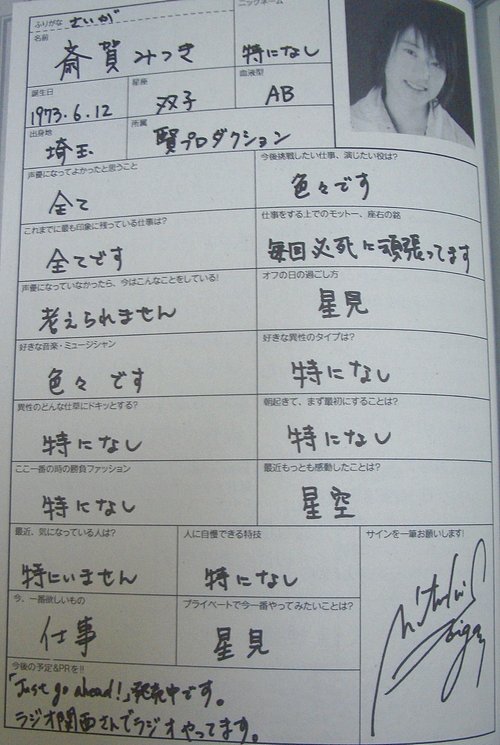 ふりがな さいが
ニックネーム
名前
斎賀みつき
特になし
誕生日
星座
血液型
1973.6.12
双子
AB
出身地
所属
埼玉
賢プロダクション
声優になってよかったと思うこと
今後挑戦したい仕事、演じたい役は?
全て
色々です
これまでに最も印象に残っている仕事は?
仕事をする上でのモットー、座右の銘
全てです
毎回必死に頑張ってます
声優になっていなかったら、今はこんなことをしている!
オフの日の過ごし方
考えられません
星見
好きな音楽・ミュージシャン
好きな異性のタイプは?
色々です
特になし
異性のどんな仕草にドキッとする?
朝起きて、まず最初にすることは?
特になし
特になし
ここ一番の時の勝負ファッション
最近もっとも感動したことは?
特になし
星空
最近、気になっている人は?
人に自慢できる特技
サインを一筆お願いします!
特にいません
特になし
今、一番欲しいもの
プライベートで今一番やってみたいことは?
仕事
星見
Mitsuki
Saiga
今後の予定&PRを!!
「Just go ahead!」発売中です。
ラジオ関西さんでラジオやってます。